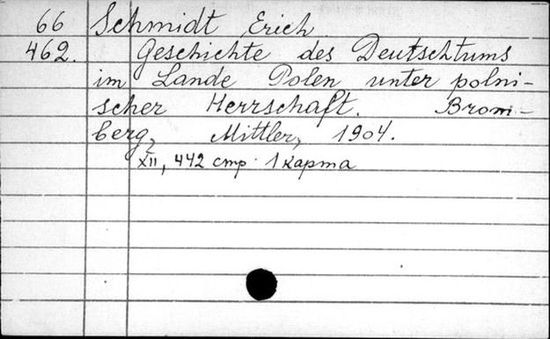 66 Schmidt Erich
462. Geschichte des Deutschtums
im Lande Polen unter polni-
scher Herrschaft. Brom-
berg, Mittler, 1904.
XII, 442 стр. 1 карта